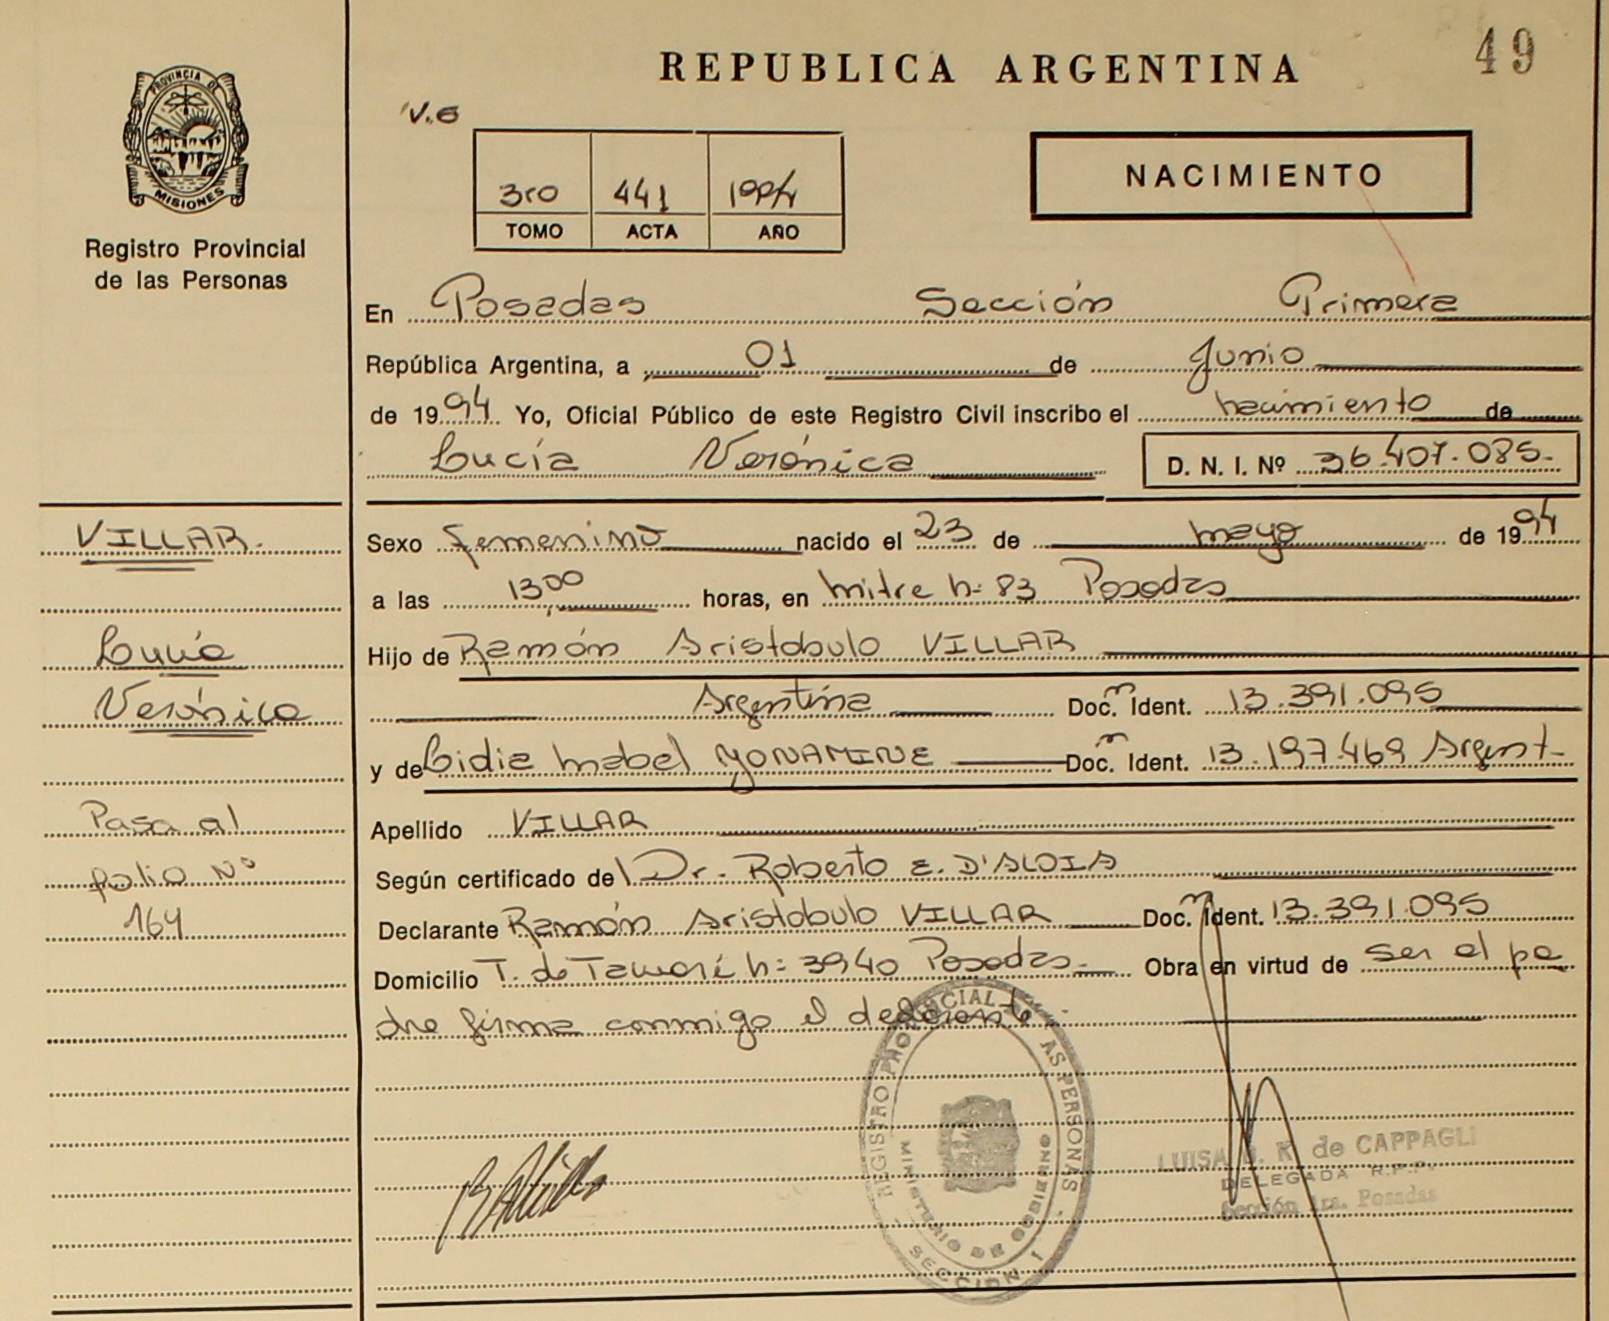 49
REPUBLICA ARGENTINA
PROVINCIA DE
MISIONES
Registro Provincial
de las Personas
V.6
3ro 441 1994
TOMO ACTA AÑO
NACIMIENTO
En Posadas Sección Primera
República Argentina, a 01 de Junio
de 1994 Yo, Oficial Público de este Registro Civil inscribo el nacimiento de
Lucía Verónica D. N. I. Nº 36.407.085.
VILLAR.
Sexo femenino nacido el 23 de mayo de 1994
a las 13,00 horas, en mitre n: 83 Posadas
Lucía
Hijo de Ramón Aristobulo VILLAR
Verónica
Argentina Doc. m Ident. 13.391.095
y de Lidia Mabel YONAMINE Doc. m Ident. 13.197.469 Argent.
Pasa al
Apellido VILLAR
folio Nº
Según certificado del Dr. Roberto E. D'ALOIA
164
Declarante Ramón Aristobulo VILLAR Doc. m Ident. 13.391.095
Domicilio T. de Tacuarí n: 3940 Posadas- Obra en virtud de ser el pa
dre firma conmigo el declarante.
REGISTRO PROVINCIAL DE LAS PERSONAS
MINISTERIO DE GOBIERNO
SECCION 1
LUISA K. de CAPPAGLI
DELEGADA R.P.P.
Sección 1ra. Posadas